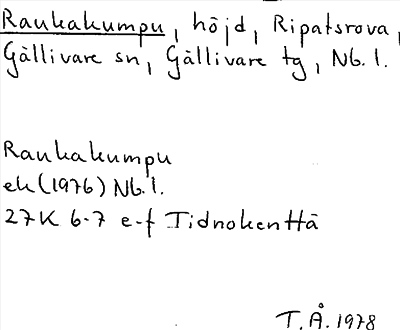 Raukakumpu, höjd, Ripatsrova,
Gällivare sn, Gällivare tg, Nb. l.
Raukakumpu
ek (1976) Nb. l.
27K 6-7 e-f Tidnokenttä
T. Å. 1978